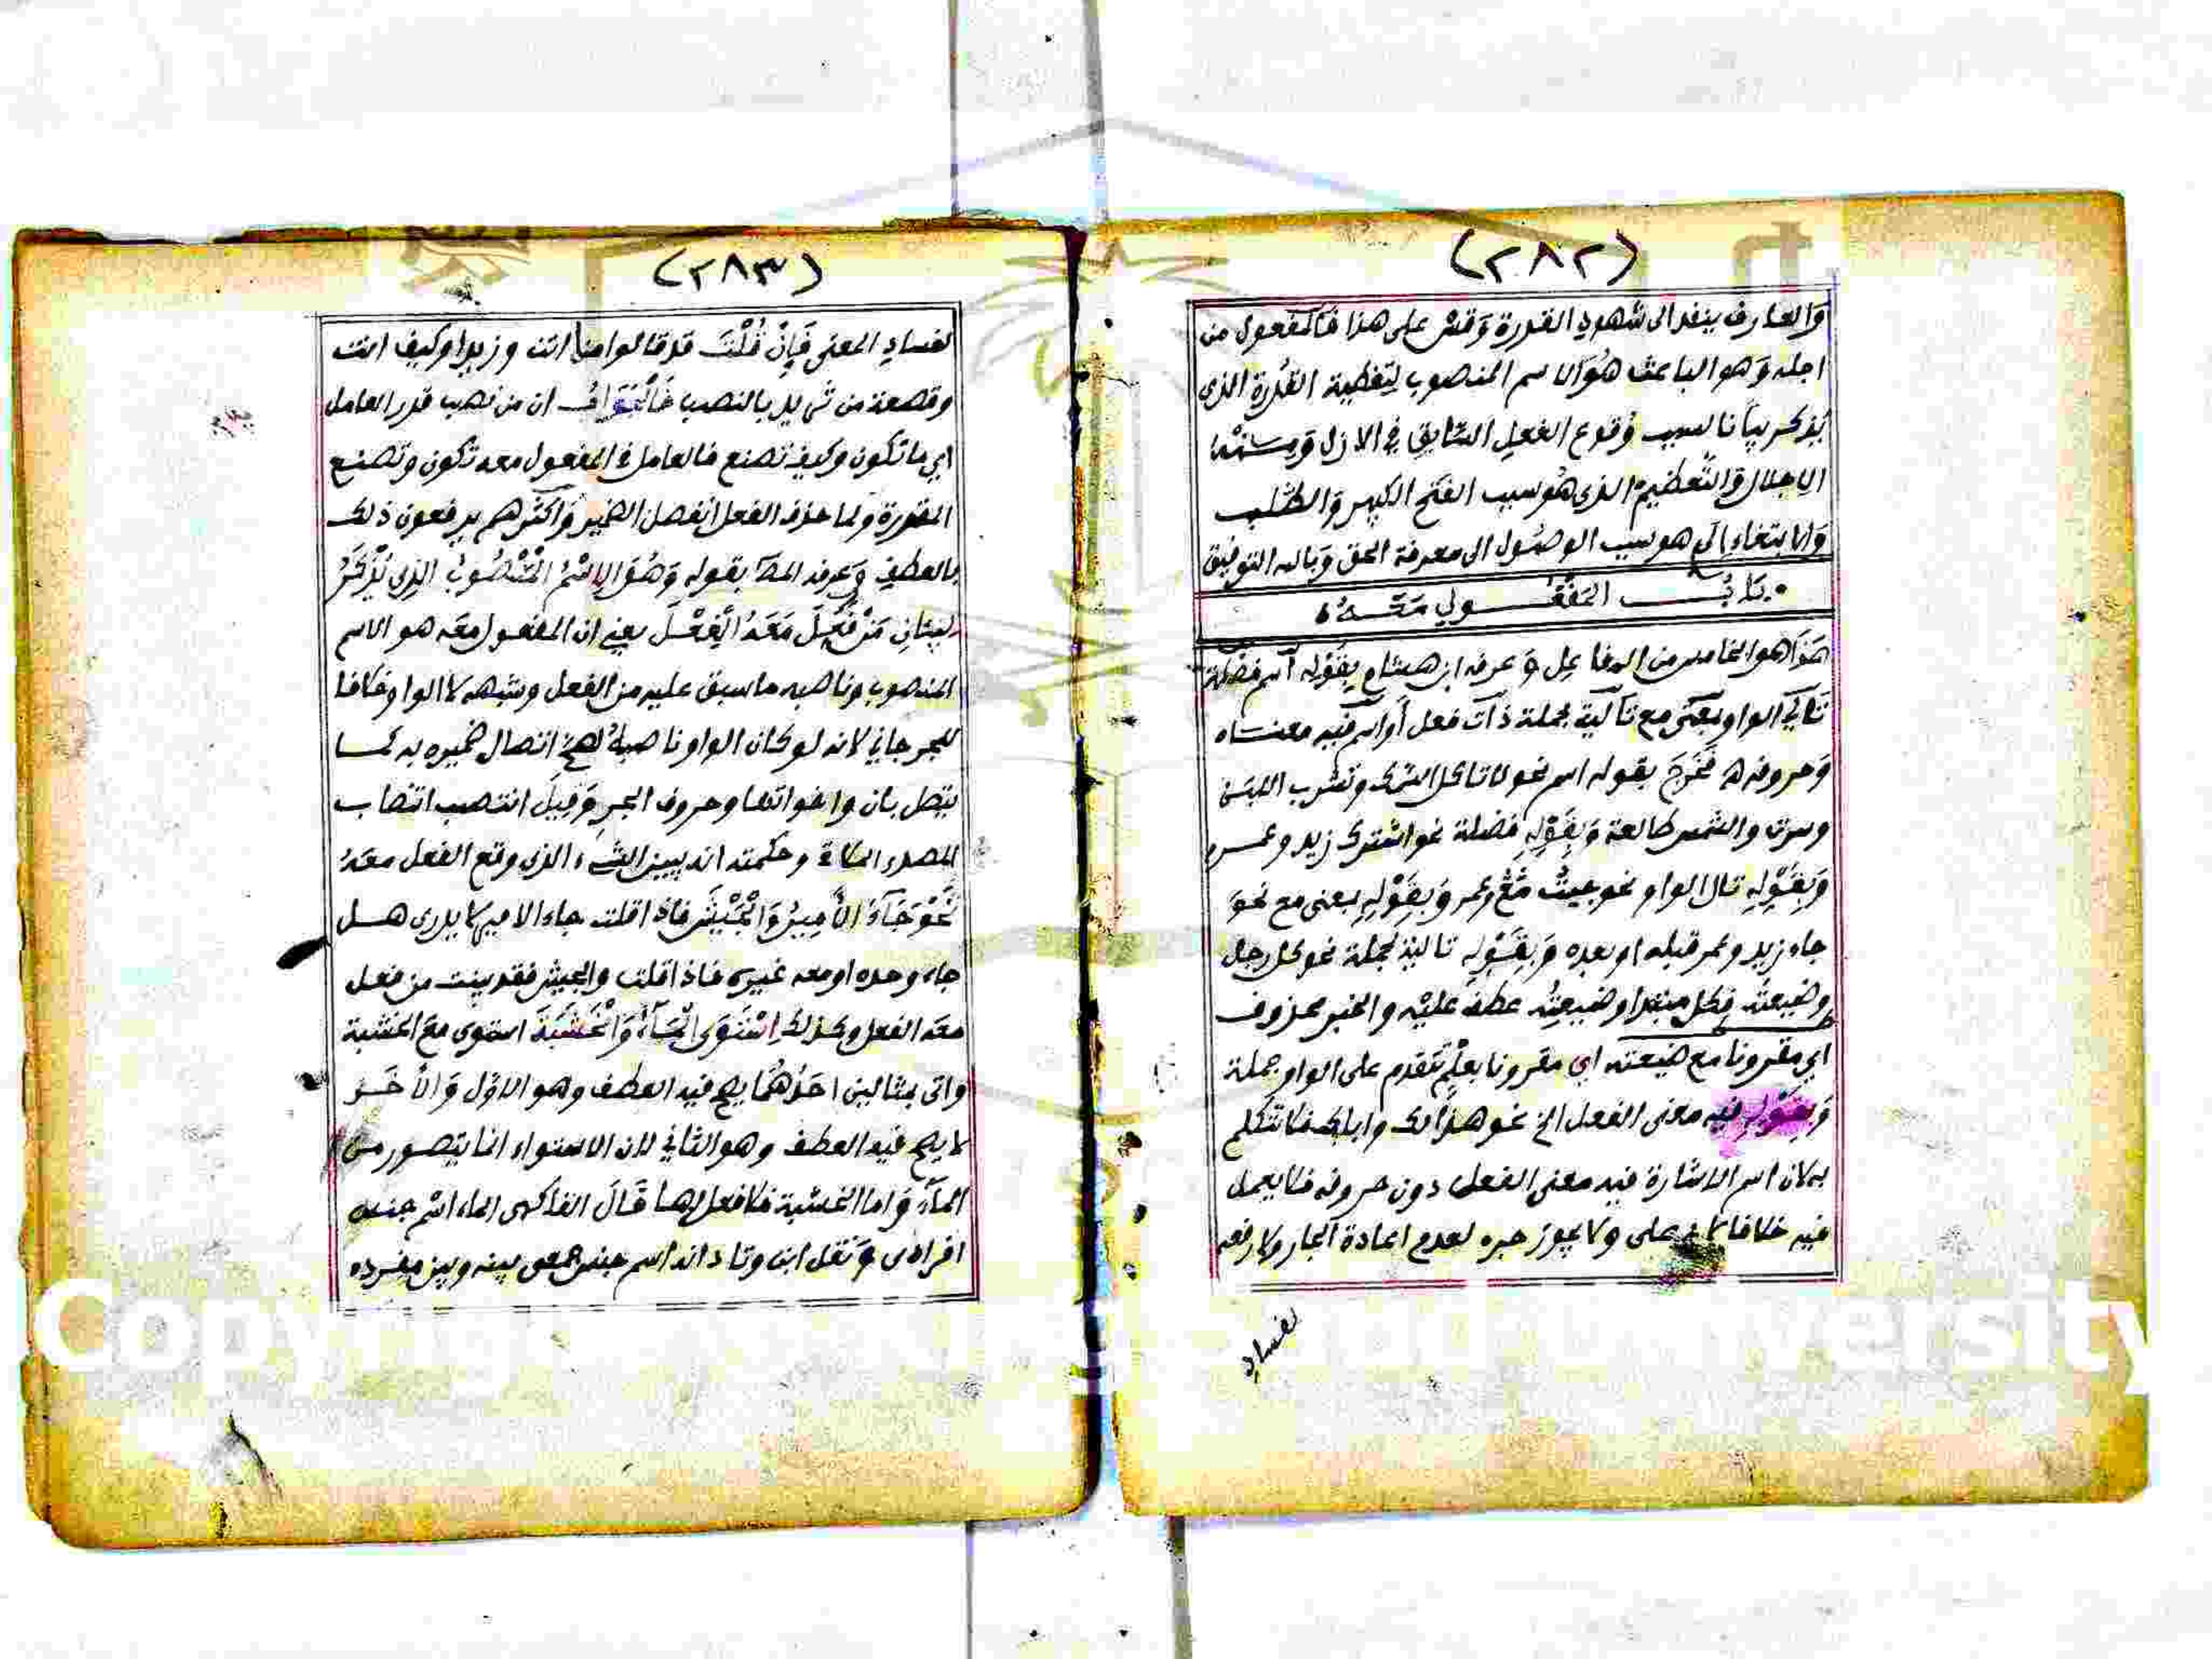 (٢٨٢)
والعارف ينفد الى شهود القدرة وقس على هذا فالمفعول من
اجله وهو الباعث هو الاسم المنصوب لتغطية القدرة الذى
يذكر بيانا لسبب وقوع الفعل السابق في الازل
الاجلال والتعظيم الذى هو سبب الفتح الكبير والطلب
والابتغاء الى هو سبب الوصول الى معرفة الحق وبالله التوفيق
باب المفعول معه
هذا هو الخامس من المفاعيل وعرفه ابن هشام بقوله اسم فضلة
تالي الواو بمعنى مع تالية لجملة ذات فعل أو اسم فيه معناه
وحروفه فخرج بقوله اسم نحو لا تاكل السمك وتشرب اللبن
وسرت والشمس طالعة وبقوله فضلة نحو اشترك زيد وعمرو
وبقوله تال الواو نحو جيت مع عمر وبقوله بمعنى مع نحو
جاء زيد وعمر قبله او بعده وبقوله تالية لجملة نحو كل رجل
وضيعته فكل مبتدا وضيعته عطف عليه والخبر محذوف
اي مقرونا مع ضيعته اي مقرونا تقدم على الواو جملة
وبقوله فيه معنى الفعل الخ نحو هذا لك واباك فلا تتكلم
به لان اسم الاشارة فيه معنى الفعل دون حروفه فلا يعمل
فيه خلافا لابي على ولا يجوز جره لعدم اعادة الجار ولا رفعه
لفساد
(٢٨٣)
لفساد المعنى فإن قلت قد قالوا ما انت وزيدا وكيف انت
وقصعة من ثريد بالنصب فالجواب ان من نصب قدر العامل
اي ما تكون وكيف تصنع فالعامل في المفعول معه تكون وتصنع
المقدرة ولما حذف الفعل انفصل الضمير واكثرهم يرفعون ذلك
بالعطف وعرفه المص بقوله وهو الاسم المنصوب الذي يذكر
لبيان من فعل معه الفعل يعني ان المفعول معه هو الاسم
المنصوب وناصبه ما سبق عليه من الفعل وشبهه لا الواو خلافا
للجرجاني لانه لو كان الواو ناصبة لصح اتصال ضميره به كما
يتصل بان واخواتها وحروف الجر وقيل انتصب انتصاب
المصدر وحكمته انه يبين الشيء الذى وقع الفعل معه
نحو جاء الأمير والجيش فاذا قلت جاء الامير لا يدرى هل
جاء وحده او معه غيره فاذا قلت والجيش فقد بينت من فعل
معه الفعل وكذلك استوى الماء والخشبة استوى مع الخشبة
واتى بمثالين احدهما يصح فيه العطف وهو الاول والآخر
لا يصح فيه العطف وهو الثاني لان الاستواء انما يتصور من
الماء واما الخشبة فلا فعل لها قال الفاكهى الماء اسم جنس
افرادى ونقل ابن وتاد انه اسم جنس جمعى بينه وبين مفرده